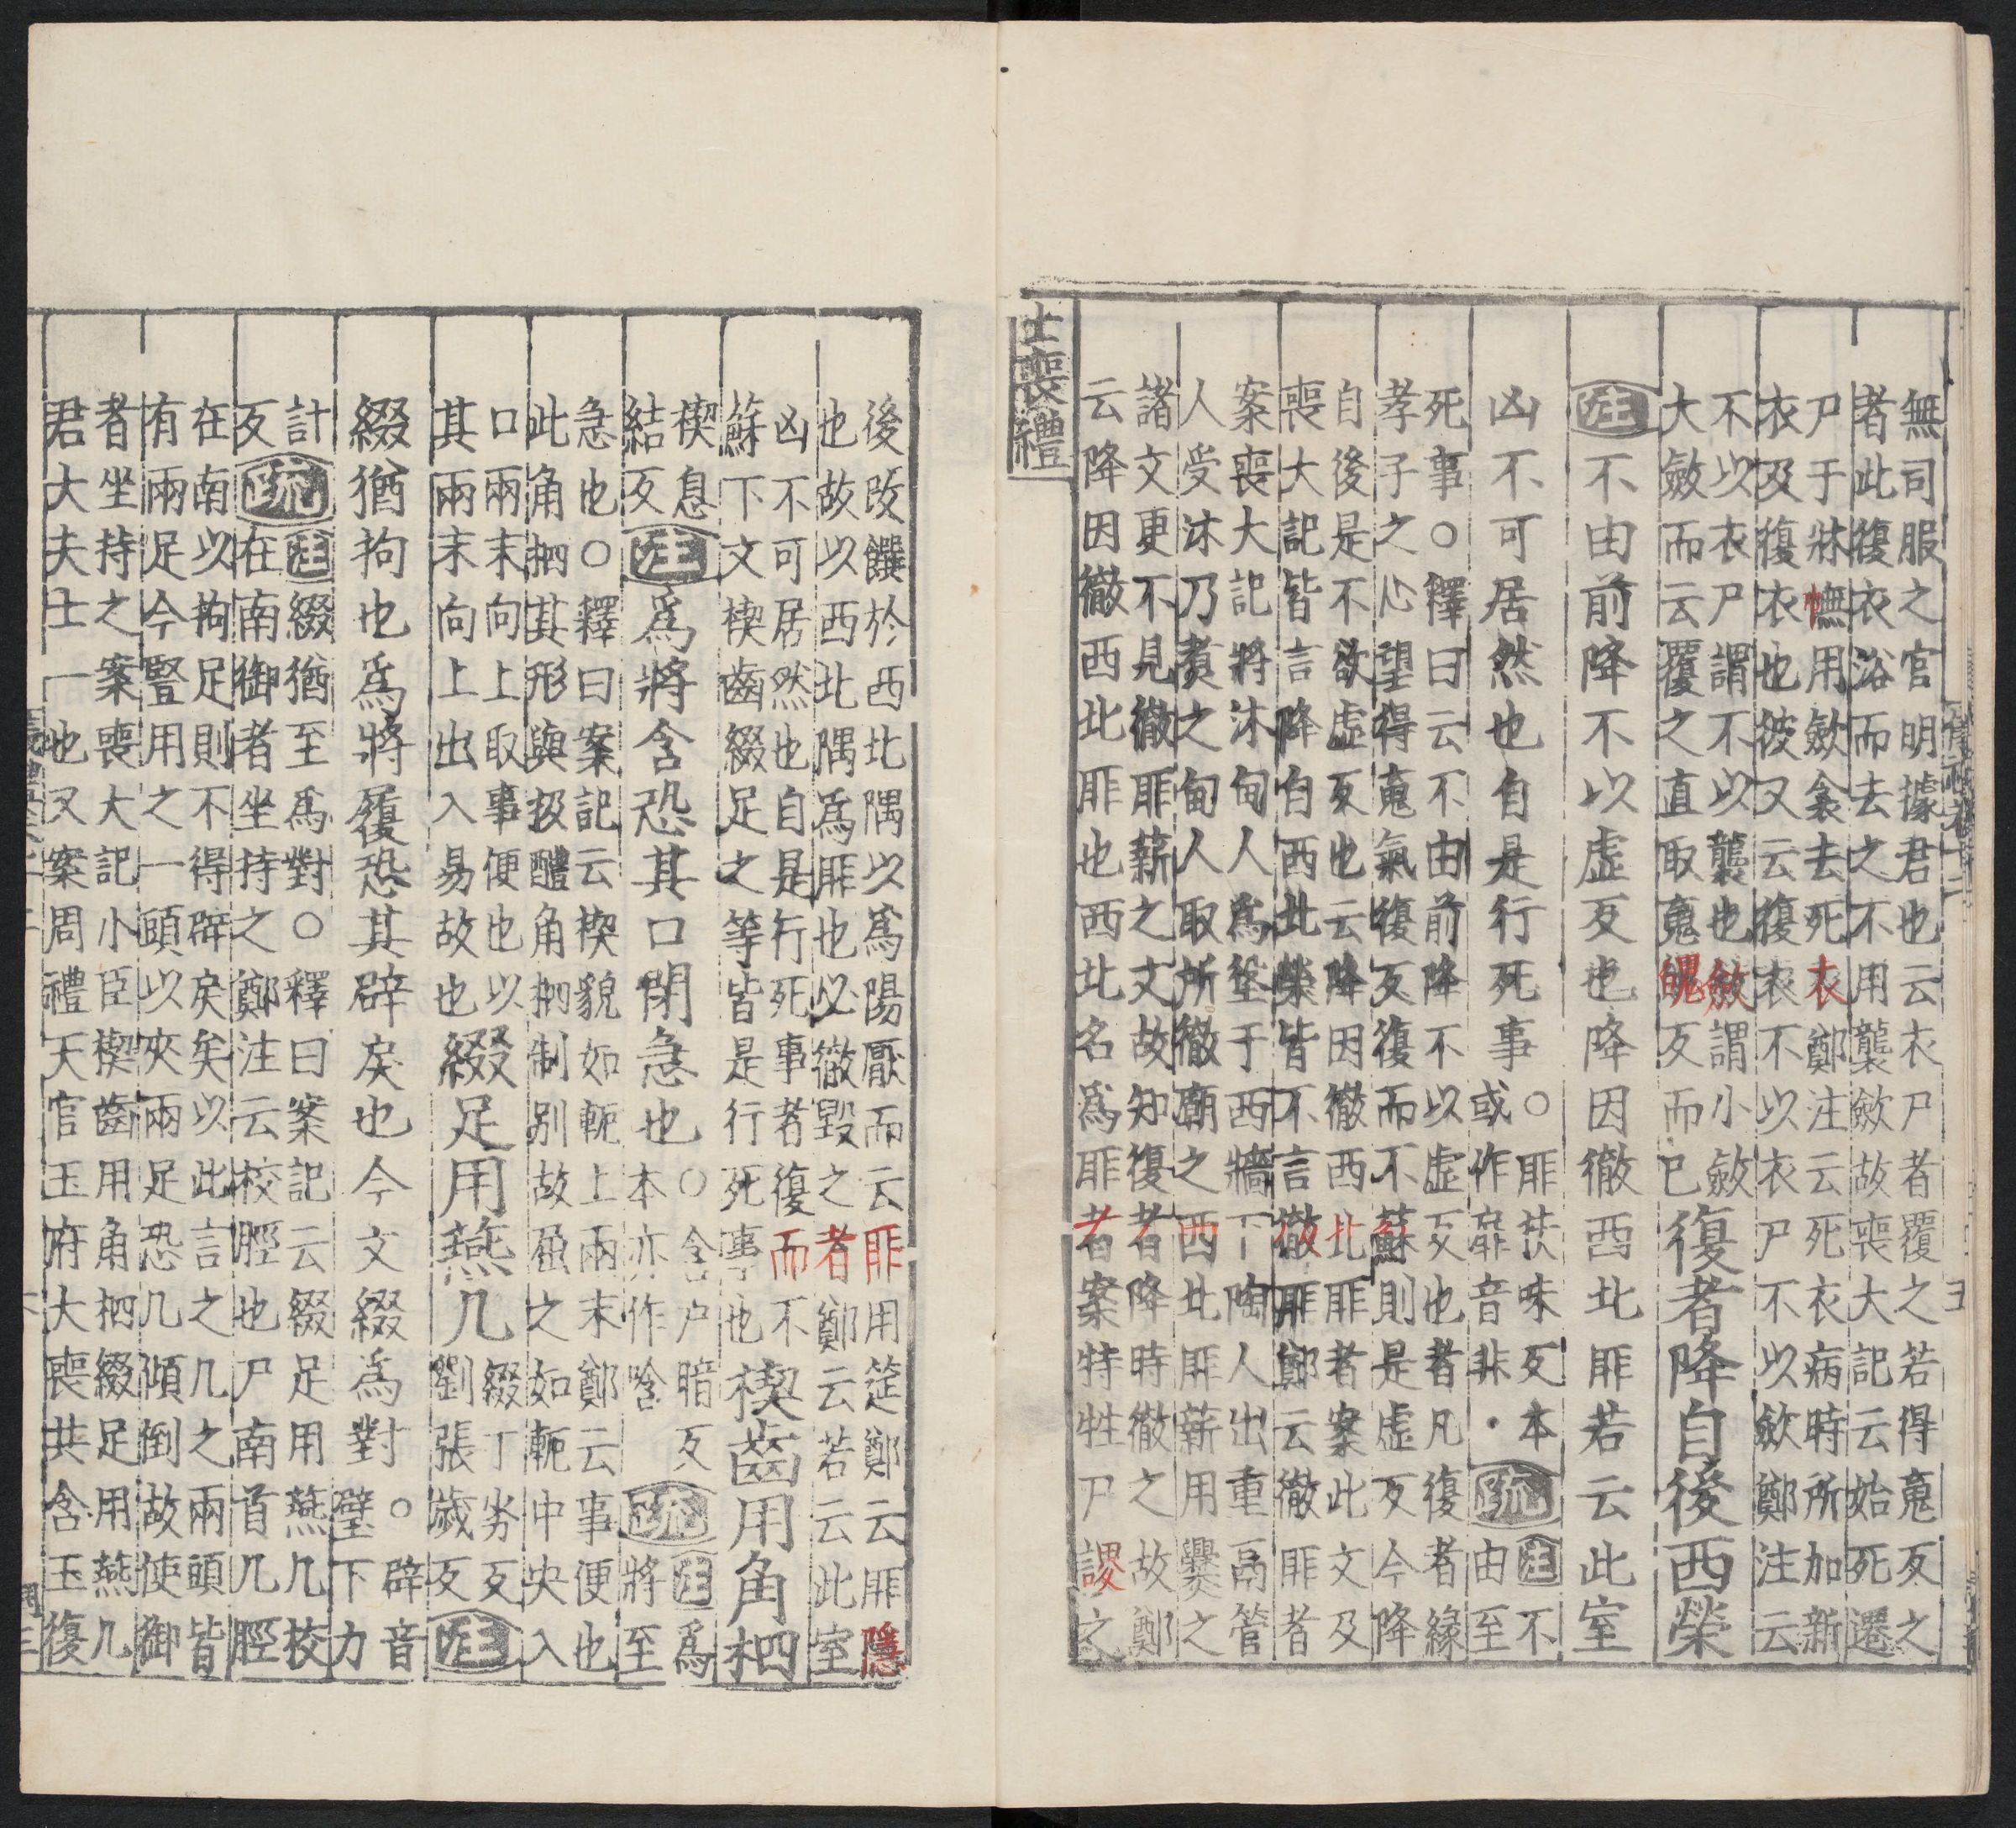 無司服之官明據君也云衣尸者覆之若得䰟反之
者此復衣浴而去之不用襲斂故喪大記云始死遷
尸于牀幠用斂衾去死衣鄭注云死衣病時所加新
衣及復衣也彼又云復衣不以衣尸不以斂鄭注云
不以衣尸謂不以襲也斂謂小斂
大斂而云覆之直取䰟魄反而已
復者降自後西榮
注不由前降不以虛反也降因徹西北厞若云此室
凶不可居然也自是行死事
○厞扶味反本
或作扉音非・
疏
注不
由至
死事○釋曰云不由前降不以虛反也者凡復者緣
孝子之心望得䰟氣復反復而不蘇則是虛反今降
自後是不欲虛反也云降因徹西北厞者案此文及
喪大記皆言降自西北榮皆不言徹厞鄭云徹厞者
案喪大記將沐甸人爲垼于西牆下陶人出重鬲管
人受沐乃煑之甸人取所徹廟之西北厞薪用爨之
諸文更不見徹厞薪之文故知復者降時徹之故鄭
云降因徹西北厞也西北名爲厞者案特牲尸謖之
士喪禮
後改饌於西北隅以爲陽厭而云厞用筵鄭云厞隱
也故以西北隅爲厞也必徹毀之者鄭云若云此室
凶不可居然也自是行死事者復而不
蘇下文楔齒綴足之等皆是行死事也
楔齒用角柶
楔息
結反
注爲將含恐其口閉急也
○含户暗反
本亦作唅
疏
注爲
將至
急也○釋曰案記云楔貌如軶上兩末鄭云事便也
此角柶其形與扱醴角柶制別故屈之如軶中央入
口兩末向上取事便也以
其兩末向上出入易故也
綴足用燕几
綴丁劣反
劉張歲反
注
綴猶拘也爲將履恐其辟戾也今文綴爲對
○辟音
璧下力
計
反
疏
注綴猶至爲對○釋曰案記云綴足用燕几校
在南御者坐持之鄭注云校脛也尸南首几脛
在南以拘足則不得辟戾矣以此言之几之兩頭皆
有兩足今豎用之一頭以夾兩足恐几傾倒故使御
者坐持之案喪大記小臣楔齒用角柶綴足用燕几
君大夫士一也又案周禮天官玉府大喪共含玉復